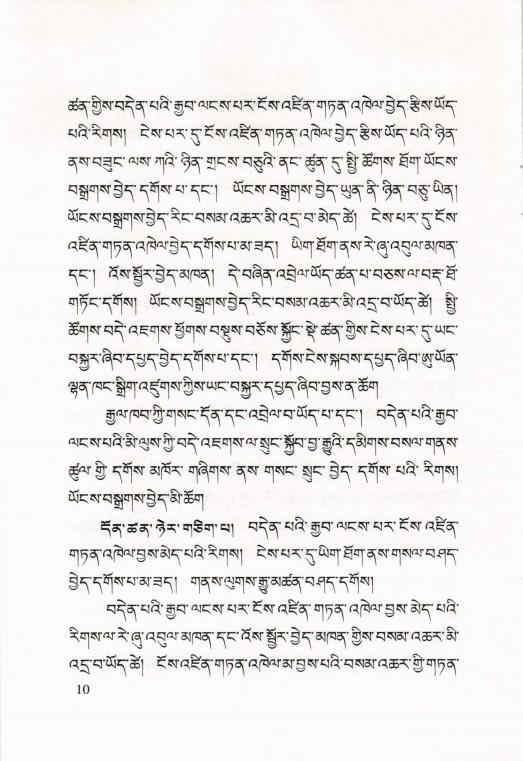 ཚན་གྱིས་བདེན་པའི་རྒྱབ་ལངས་པར་ངོས་འཛིན་གཏན་འཁེལ་བྱེད་རྩིས་ཡོད་
པའི་རིགས། ངེས་པར་དུ་ངོས་འཛིན་གཏན་འཁེལ་བྱེད་རྩིས་ཡོད་པའི་ཉིན་
ནས་བཟུང་ལས་ཀའི་ཉིན་གྲངས་བཅུའི་ནང་ཚུན་དུ་སྤྱི་ཚོགས་ཐོག་ཡོངས་
བསྒྲགས་བྱེད་དགོས་པ་དང་། ཡོངས་བསྒྲགས་བྱེད་ཡུན་ནི་ཉིན་བཅུ་ཡིན།
ཡོངས་བསྒྲགས་བྱེད་རིང་བསམ་འཆར་མི་འདྲ་བ་མེད་ཚེ། ངེས་པར་དུ་ངོས་
འཛིན་གཏན་འཁེལ་བྱེད་དགོས་པ་མ་ཟད། ཡིག་ཐོག་ནས་རེ་ཞུ་འབུལ་མཁན་
དང་། འོས་སྦྱོར་བྱེད་མཁན། དེ་བཞིན་འབྲེལ་ཡོད་ཚན་པ་བཅས་ལ་བརྡ་ཐོ་
གཏོང་དགོས། ཡོངས་བསྒྲགས་བྱེད་རིང་བསམ་འཆར་མི་འདྲ་བ་ཡོད་ཚེ། སྤྱི་
ཚོགས་བདེ་འཇགས་ཕྱོགས་བསྡུས་བཅོས་སྐྱོང་སྡེ་ཚན་གྱིས་ངེས་པར་དུ་ཡང་
བསྐྱར་ཞིབ་དཔྱད་བྱེད་དགོས་པ་དང་། དགོས་ངེས་སྐབས་དཔྱད་ཞིབ་ཨུ་ཡོན་
ལྷན་ཁང་སྒྲིག་འཛུགས་ཀྱིས་ཡང་བསྐྱར་དཔྱད་ཞིབ་བྱས་ན་ཆོག
རྒྱལ་ཁབ་ཀྱི་གསང་དོན་དང་འབྲེལ་བ་ཡོད་པ་དང་། བདེན་པའི་རྒྱབ་
ལངས་པའི་མི་ལུས་ཀྱི་བདེ་འཇགས་ལ་སྲུང་སྐྱོབ་བྱ་རྒྱུའི་དམིགས་བསལ་གནས་
ཚུལ་གྱི་དགོས་མཁོར་གཞིགས་ནས་གསང་སྲུང་བྱེད་དགོས་པའི་རིགས།
ཡོངས་བསྒྲགས་བྱེད་མི་ཆོག
དོན་ཚན་ཉེར་གཅིག་པ། བདེན་པའི་རྒྱབ་ལངས་པར་ངོས་འཛིན་
གཏན་འཁེལ་བྱས་མེད་པའི་རིགས། ངེས་པར་དུ་ཡིག་ཐོག་ནས་གསལ་བཤད་
བྱེད་དགོས་པ་མ་ཟད། གནས་ལུགས་རྒྱུ་མཚན་བཤད་དགོས།
བདེན་པའི་རྒྱབ་ལངས་པར་ངོས་འཛིན་གཏན་འཁེལ་བྱས་མེད་པའི་
རིགས་ལ་རེ་ཞུ་འབུལ་མཁན་དང་འོས་སྦྱོར་བྱེད་མཁན་གྱིས་བསམ་འཆར་མི་
འདྲ་བ་ཡོད་ཚེ། ངོས་འཛིན་གཏན་འཁེལ་མ་བྱས་པའི་བསམ་འཆར་གྱི་གཏན་
10